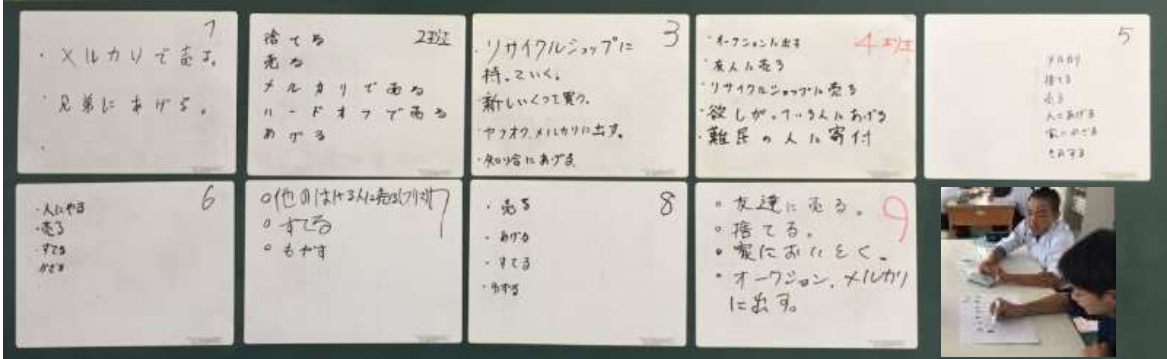 1
・メルカリで売る。
・兄弟にあげる。
・
2班
捨てる
売る
メルカリで売る
ハードオフで売る
あげる
3
・リサイクルショップに
持っていく。
新しいくつを買う。
・ヤフオク、メルカリに出す。
・知り合にあげる
4班
・オークションに出す
・友人に売る
・リサイクルショップに売る
・欲しがっている人にあげる
・難民の人に寄付
5
メルカリ
捨てる
売る
人にあげる
家にかざる
6
・人にやる
・売る
・すてる
かざる
7
○他のはける人に売る(フリマ)
○すてる
○もやす
8
・売る
・あげる
・すてる
9
・友達に売る。
・捨てる。
・家においとく。
・オークション、メルカリ
に出す。